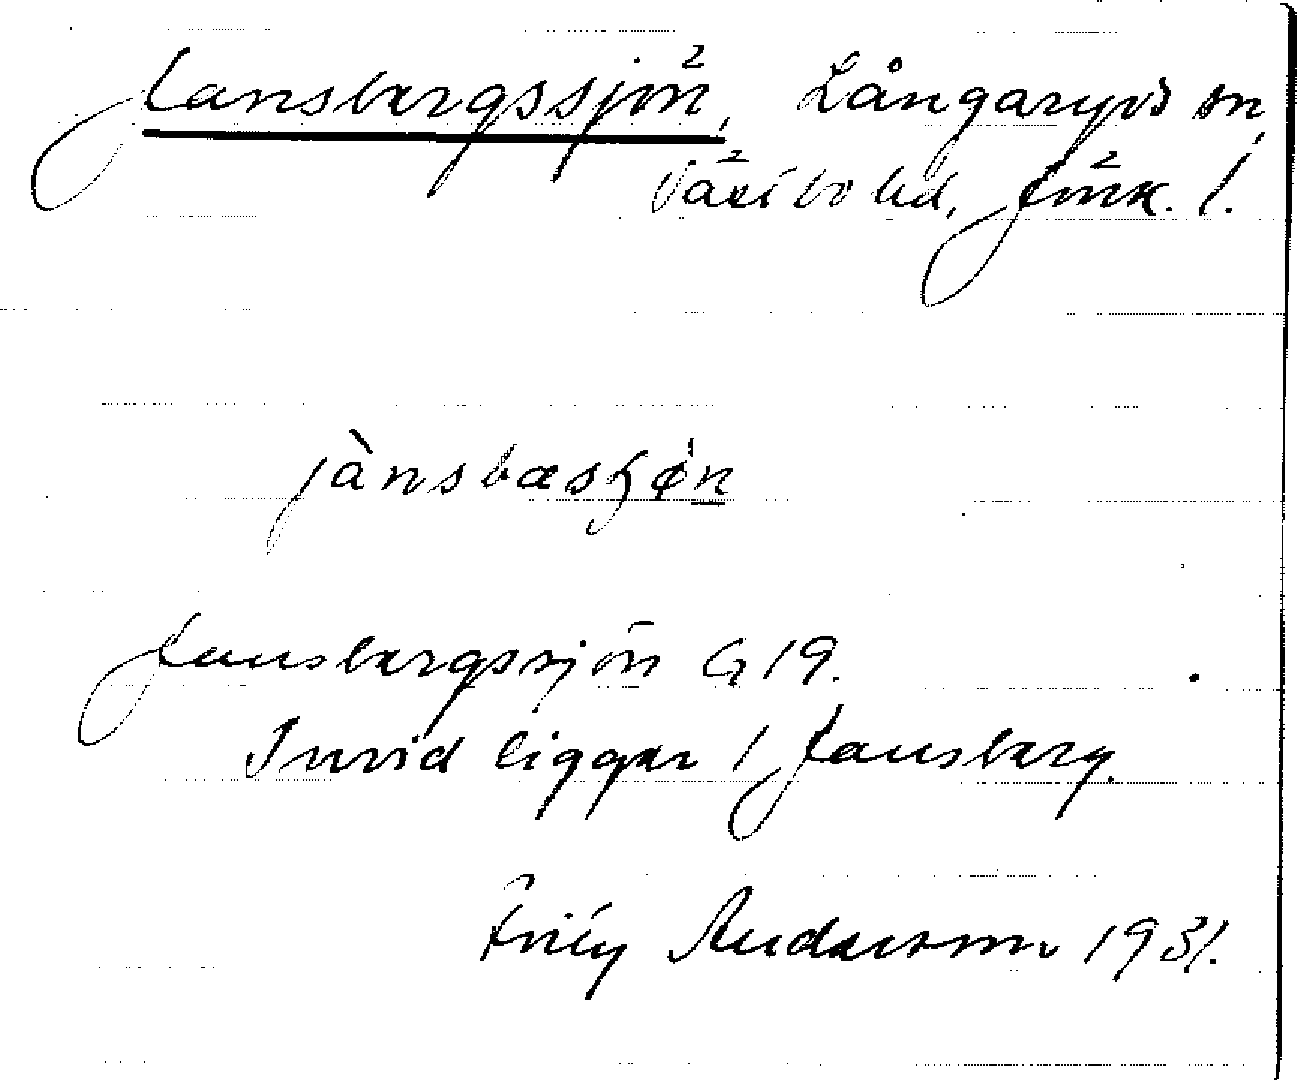 Jansbergssjön, Långaryds sn,
Västbo hd, Jönk. l.
jànsbæsʒø̀n
Jansbergssjön G 19.
Invid ligger 1 Jansberg.
Andersson 1931.